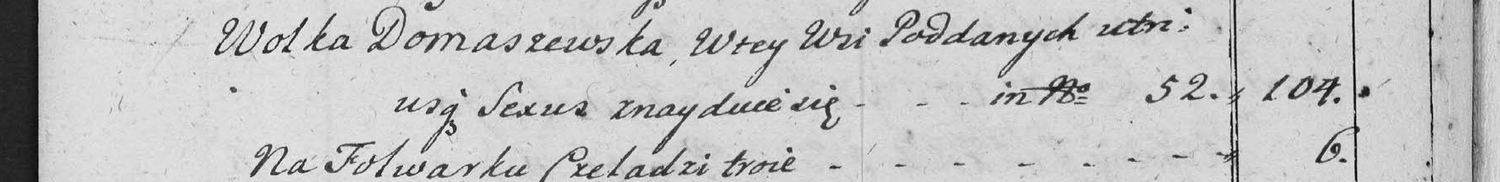 Wolka Domaszewska, Wtey Wsi Poddanych utri:
usq Sexus znayduie się - - - in No 52. 104.
Na Folwarku Czeladzi troie - - - - - - - - 6.